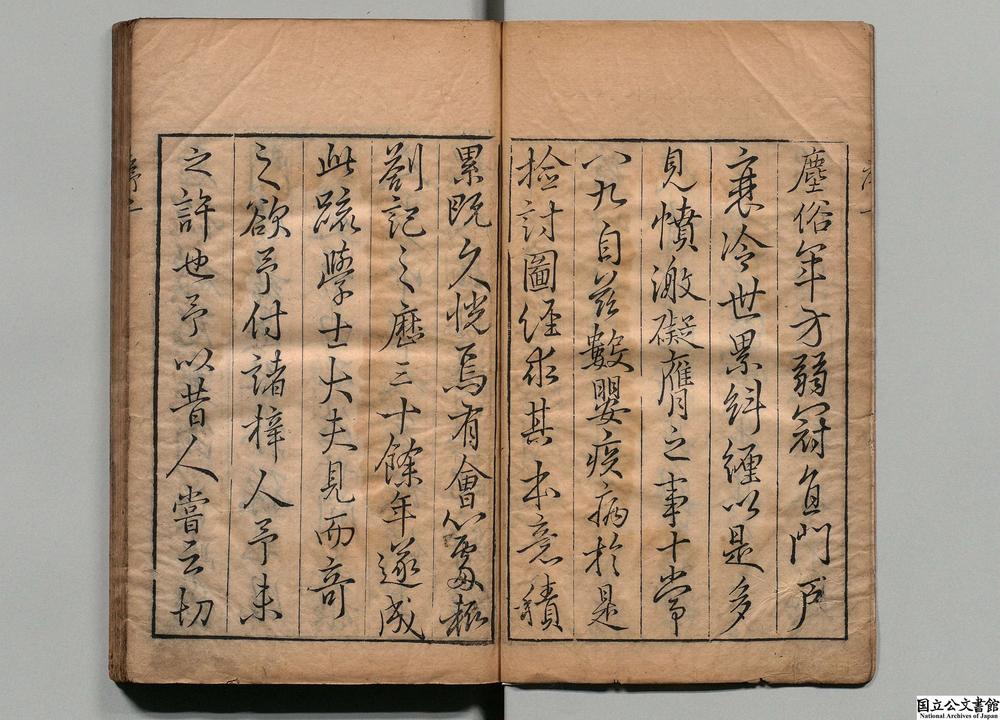 塵俗年方弱冠負門戸
衰冷世累糾纒以是多
見憤激礙膺之事十常
八九自茲數嬰疾病於是
撿討圖經求其本意積
累既久恍焉有會心處輒
劄記之歷三十餘年遂成
此疏學士大夫見而奇
之欲予付諸梓人予未
之許也予以昔人嘗云切
国立公文書館
National Archives of Japan